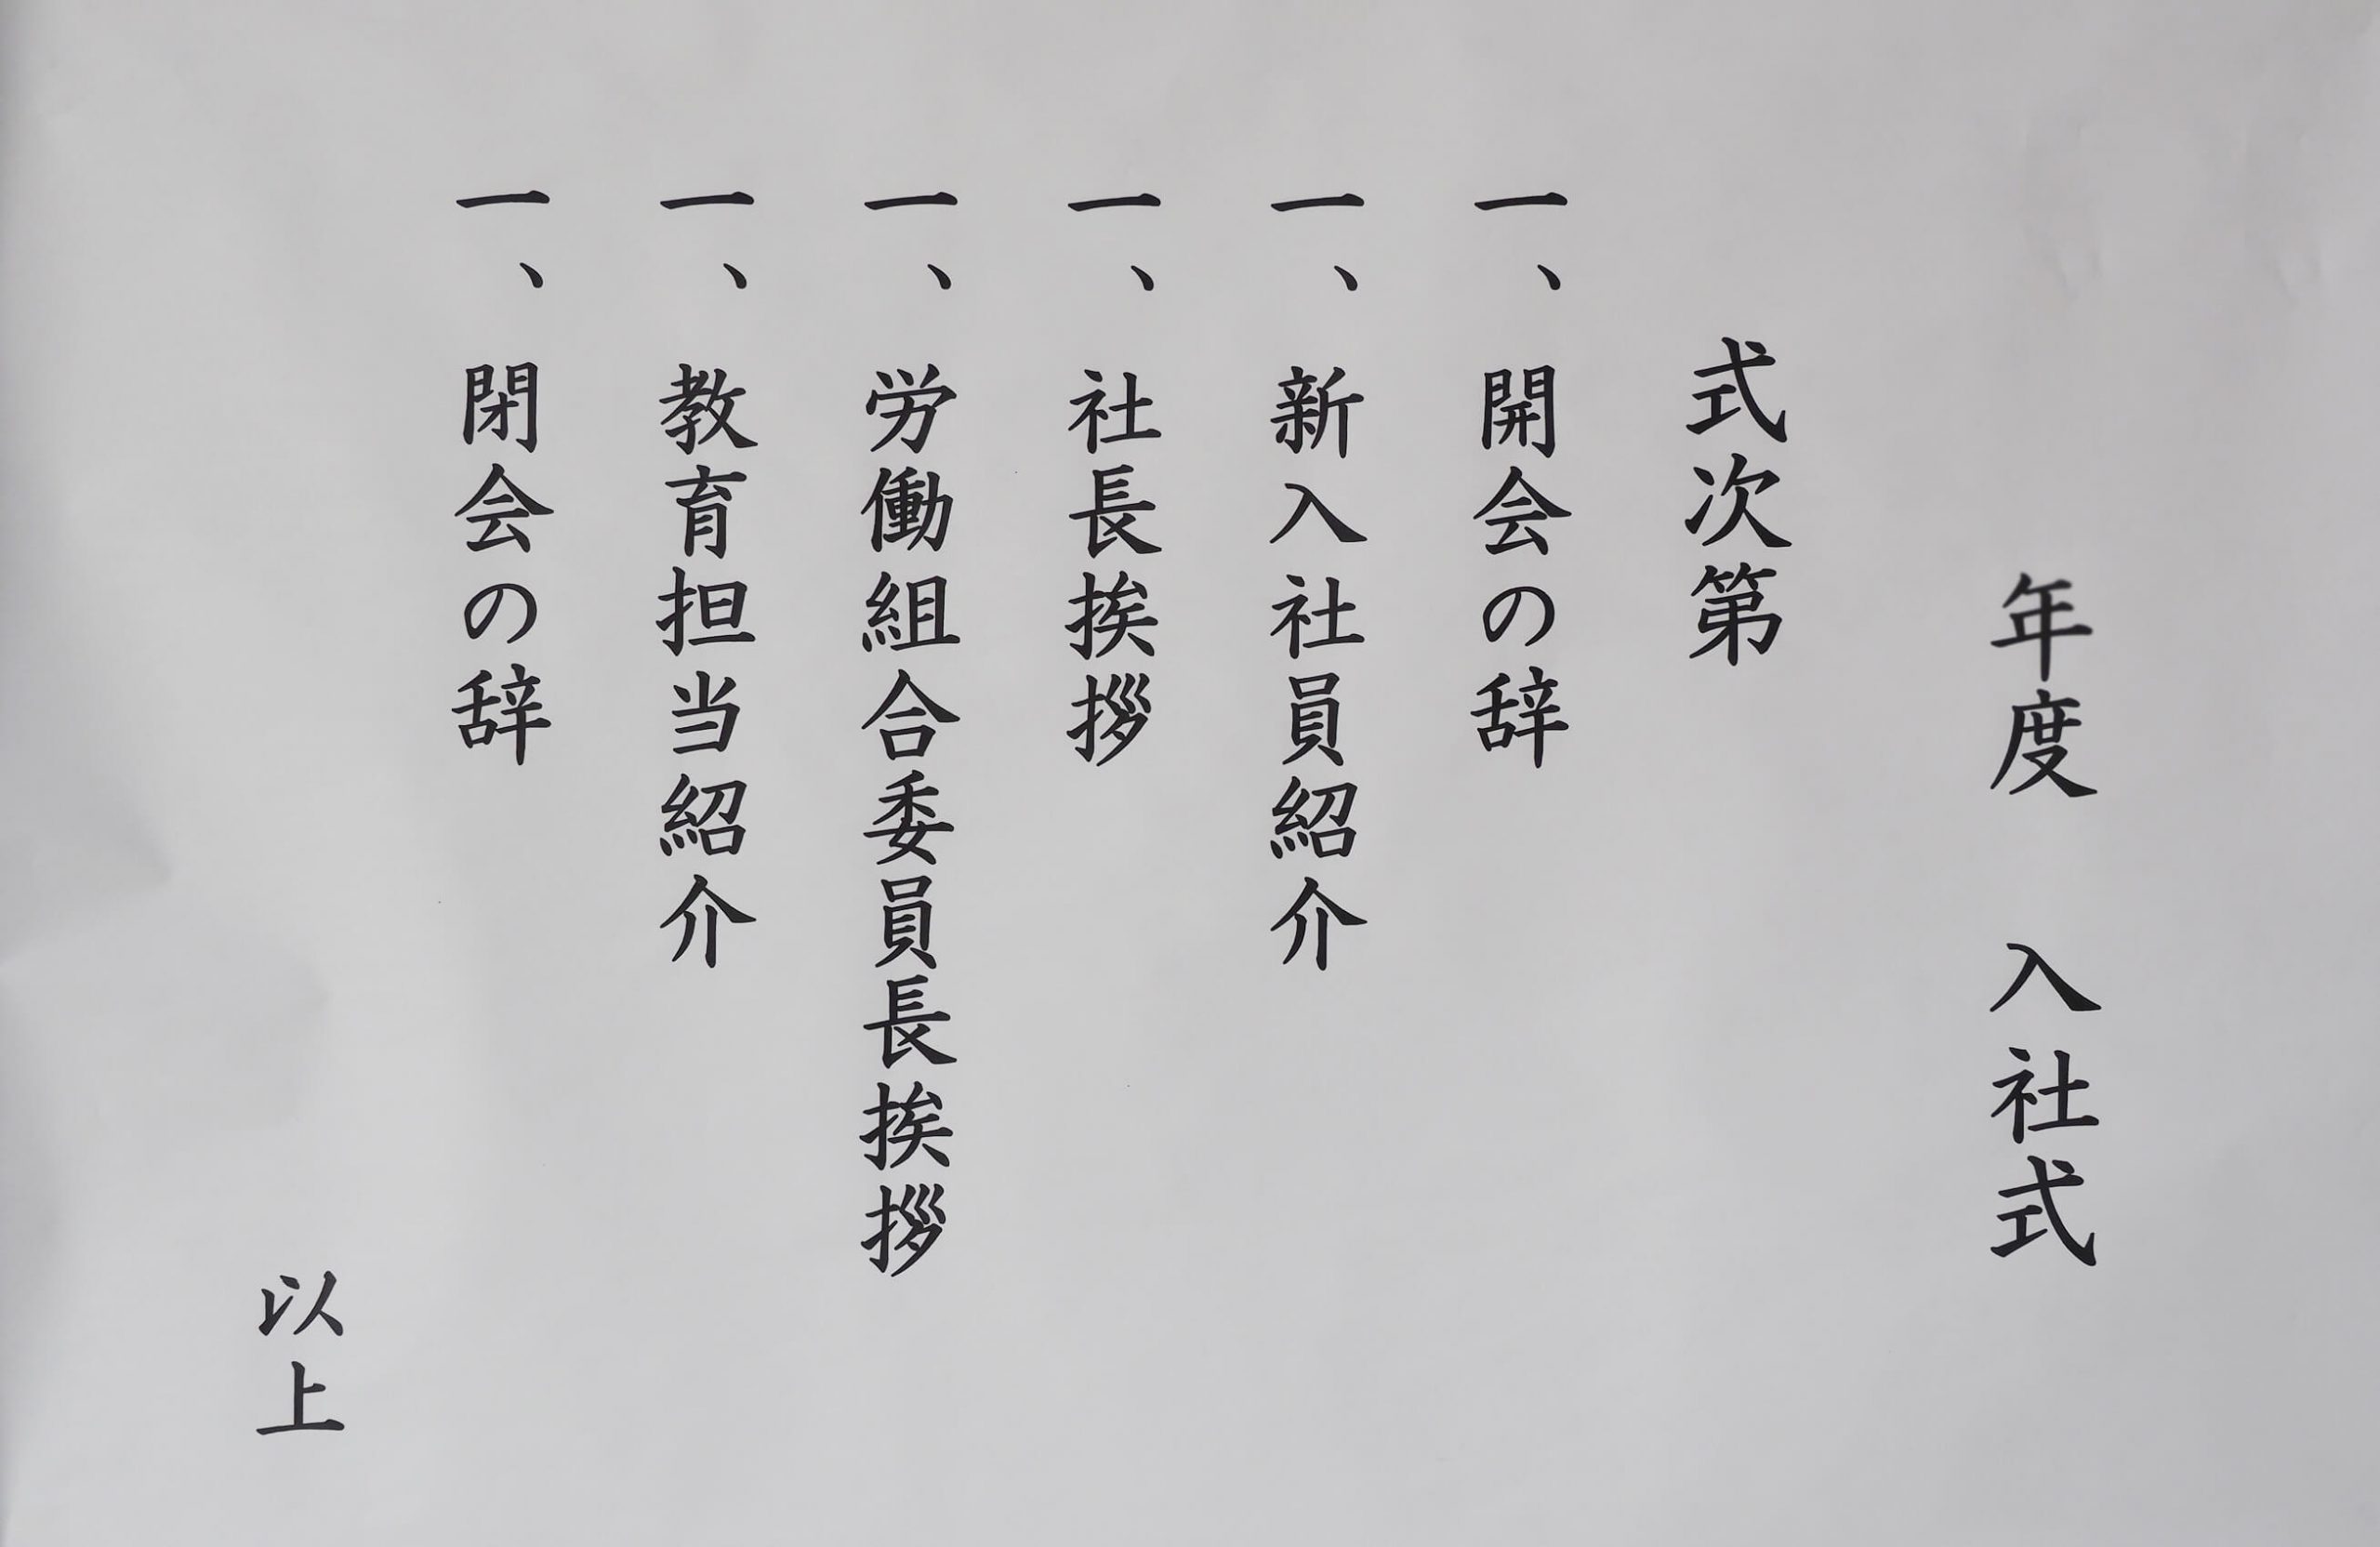 年度　入社式
式次第
一、開会の辞
一、新入社員紹介
一、社長挨拶
一、労働組合委員長挨拶
一、教育担当紹介
一、閉会の辞
以上